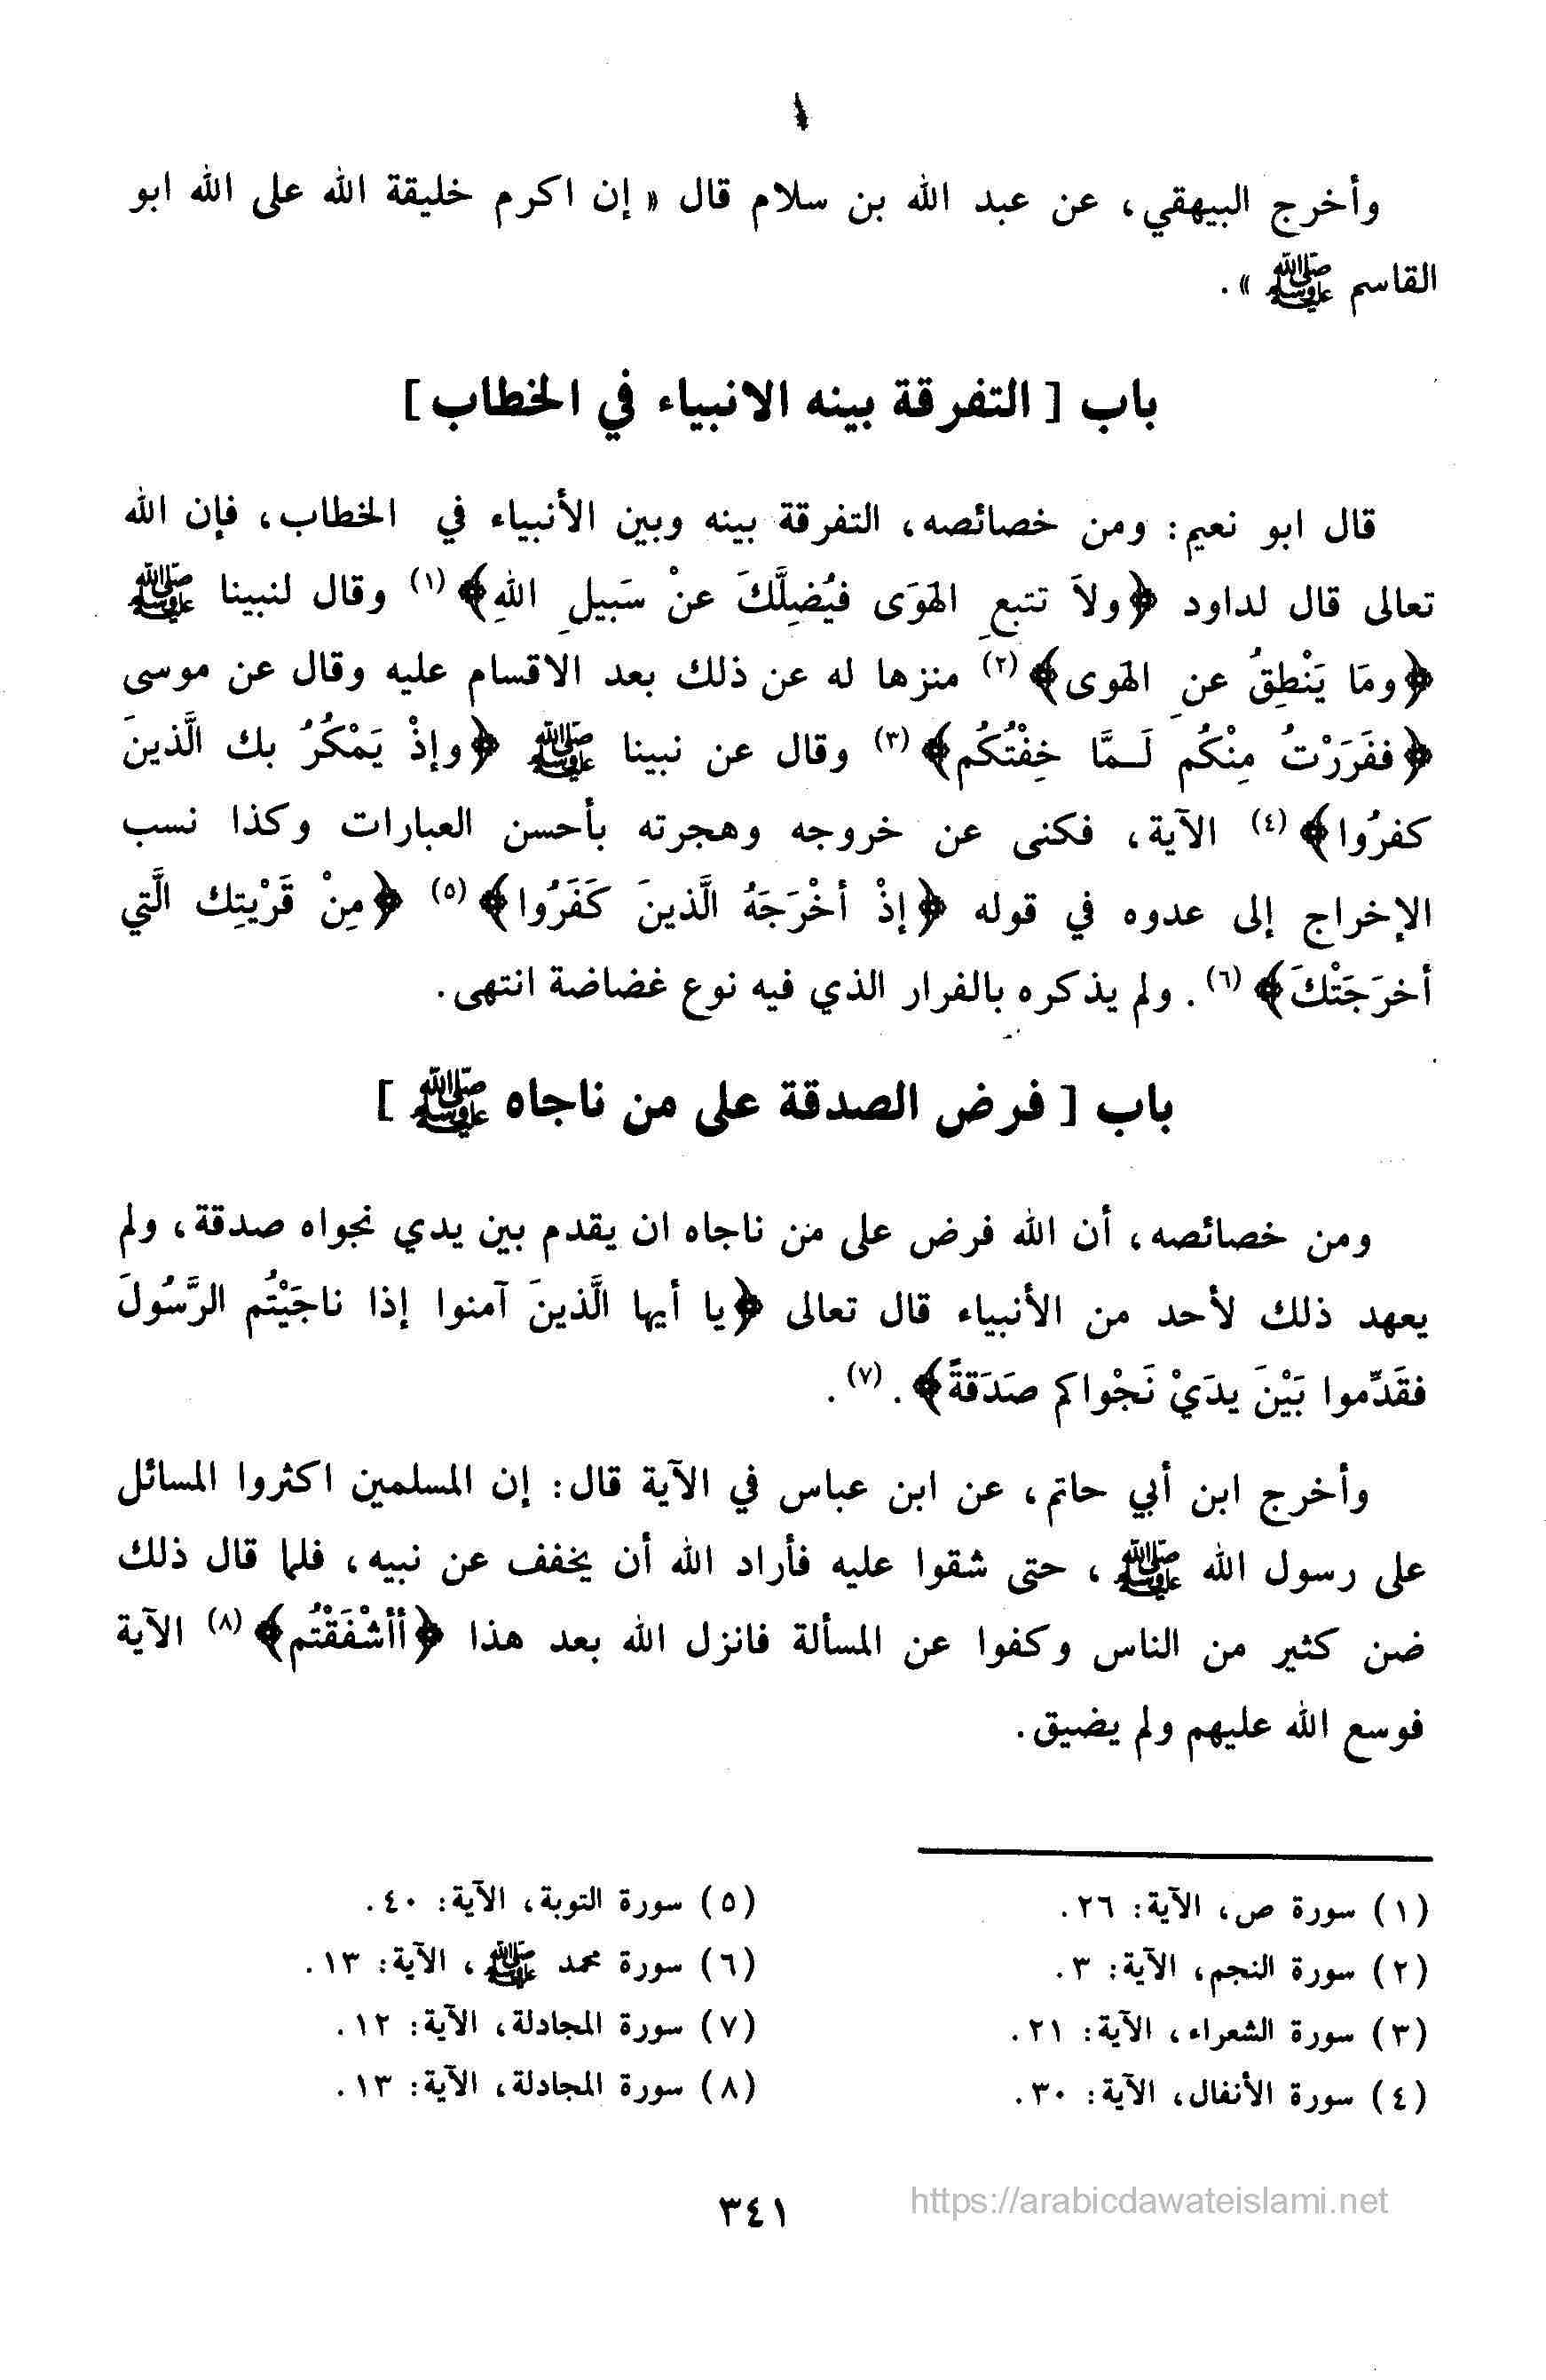 وأخرج البيهقي، عن عبد الله بن سلام قال « إن اكرم خليقة الله على الله ابو
القاسم ﷺ ».
باب [ التفرقة بينه الانبياء في الخطاب ]
قال ابو نعيم: ومن خصائصه، التفرقة بينه وبين الأنبياء في الخطاب، فإن الله
تعالى قال لداود ﴿ولاَ تتبعِ الهَوَى فيُضِلَّكَ عنْ سَبيلِ اللهِ﴾ (١) وقال لنبينا ﷺ
﴿ومَا يَنْطِقُ عنِ الهَوى﴾ (٢) منزها له عن ذلك بعد الاقسام عليه وقال عن موسى
﴿ففَرَرْتُ مِنْكُم لَـمَّا خِفْتُكُم﴾ (٣) وقال عن نبينا ﷺ ﴿وإذْ يَمْكُرُ بك الَّذينَ
كفرُوا﴾ (٤) الآية، فكنى عن خروجه وهجرته بأحسن العبارات وكذا نسب
الإخراج إلى عدوه في قوله ﴿إذْ أخْرَجَهُ الَّذينَ كَفَرُوا﴾ (٥) ﴿مِنْ قَرْيتِك الَّتي
أخرَجَتْكَ﴾ (٦). ولم يذكره بالفرار الذي فيه نوع غضاضة انتهى.
باب [ فرض الصدقة على من ناجاه ﷺ ]
ومن خصائصه، أن الله فرض على من ناجاه ان يقدم بين يدي نجواه صدقة، ولم
يعهد ذلك لأحد من الأنبياء قال تعالى ﴿يا أيها الَّذينَ آمنوا إذا ناجَيْتُم الرَّسُولَ
فقَدِّموا بَيْنَ يدَيْ نَجْواكم صَدَقةً﴾. (٧).
وأخرج ابن أبي حاتم، عن ابن عباس في الآية قال: إن المسلمين اكثروا المسائل
على رسول الله ﷺ، حتى شقوا عليه فأراد الله أن يخفف عن نبيه، فلما قال ذلك
ضن كثير من الناس وكفوا عن المسألة فانزل الله بعد هذا ﴿أأشْفَقْتُم﴾ (٨) الآية
فوسع الله عليهم ولم يضيق.
(١) سورة ص، الآية: ٢٦.
(٢) سورة النجم، الآية: ٣.
(٣) سورة الشعراء، الآية: ٢١.
(٤) سورة الأنفال، الآية: ٣٠.
(٥) سورة التوبة، الآية: ٤٠.
(٦) سورة محمد ﷺ، الآية: ١٣.
(٧) سورة المجادلة، الآية: ١٢.
(٨) سورة المجادلة، الآية: ١٣.
٣٤١
https://arabicdawateislami.net